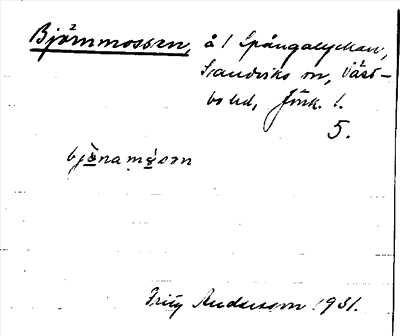 Björnmossen, å 1 Spångalyckan,
Sandviks sn, Väst-
bo hd, Jönk. l.
5.
bjö̀namòsen
Fritz Andersson 1931.